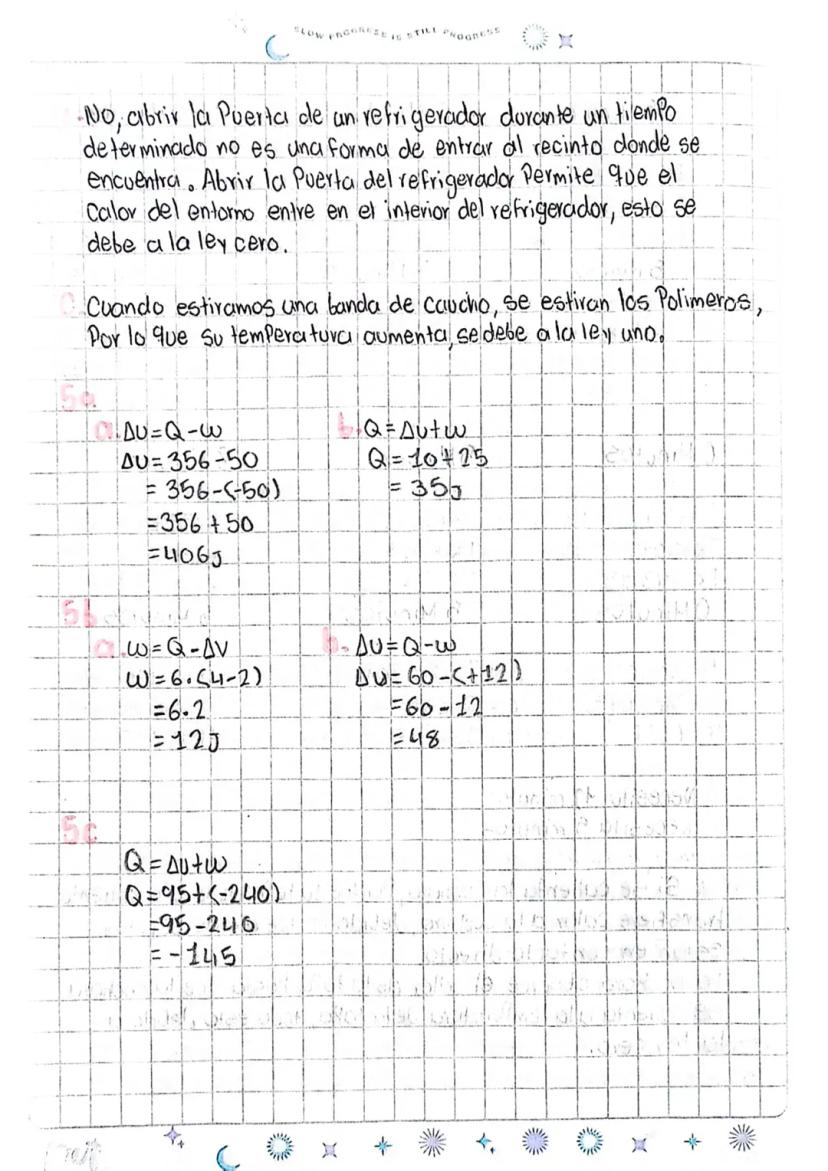 SLOW PROGRESS IS STILL PROGRESS
No, abrir la Puerta de un refrigerador durante un tiempo
determinado no es una forma de entrar al recinto donde se
encuentra. Abrir la Puerta del refrigerador Permite que el
Calor del entorno entre en el interior del refrigerador, esto se
debe a la ley cero.
C. Cuando estiramos una banda de caucho, se estiran los Polimeros,
Por lo que su temperatura aumenta, se debe a la ley uno.
5a
a. ΔU=Q-W
ΔU=356-50
= 356-(-50)
=356+50
=406J
b. Q=ΔU+W
Q=10+25
= 35J
5b
a. W=Q-ΔU
W=6.(4-2)
=6.2
=12J
b. ΔU=Q-W
ΔU=60-(+12)
=60-12
=48
5c
Q=ΔU+W
Q=95+(-240)
=95-240
=-145